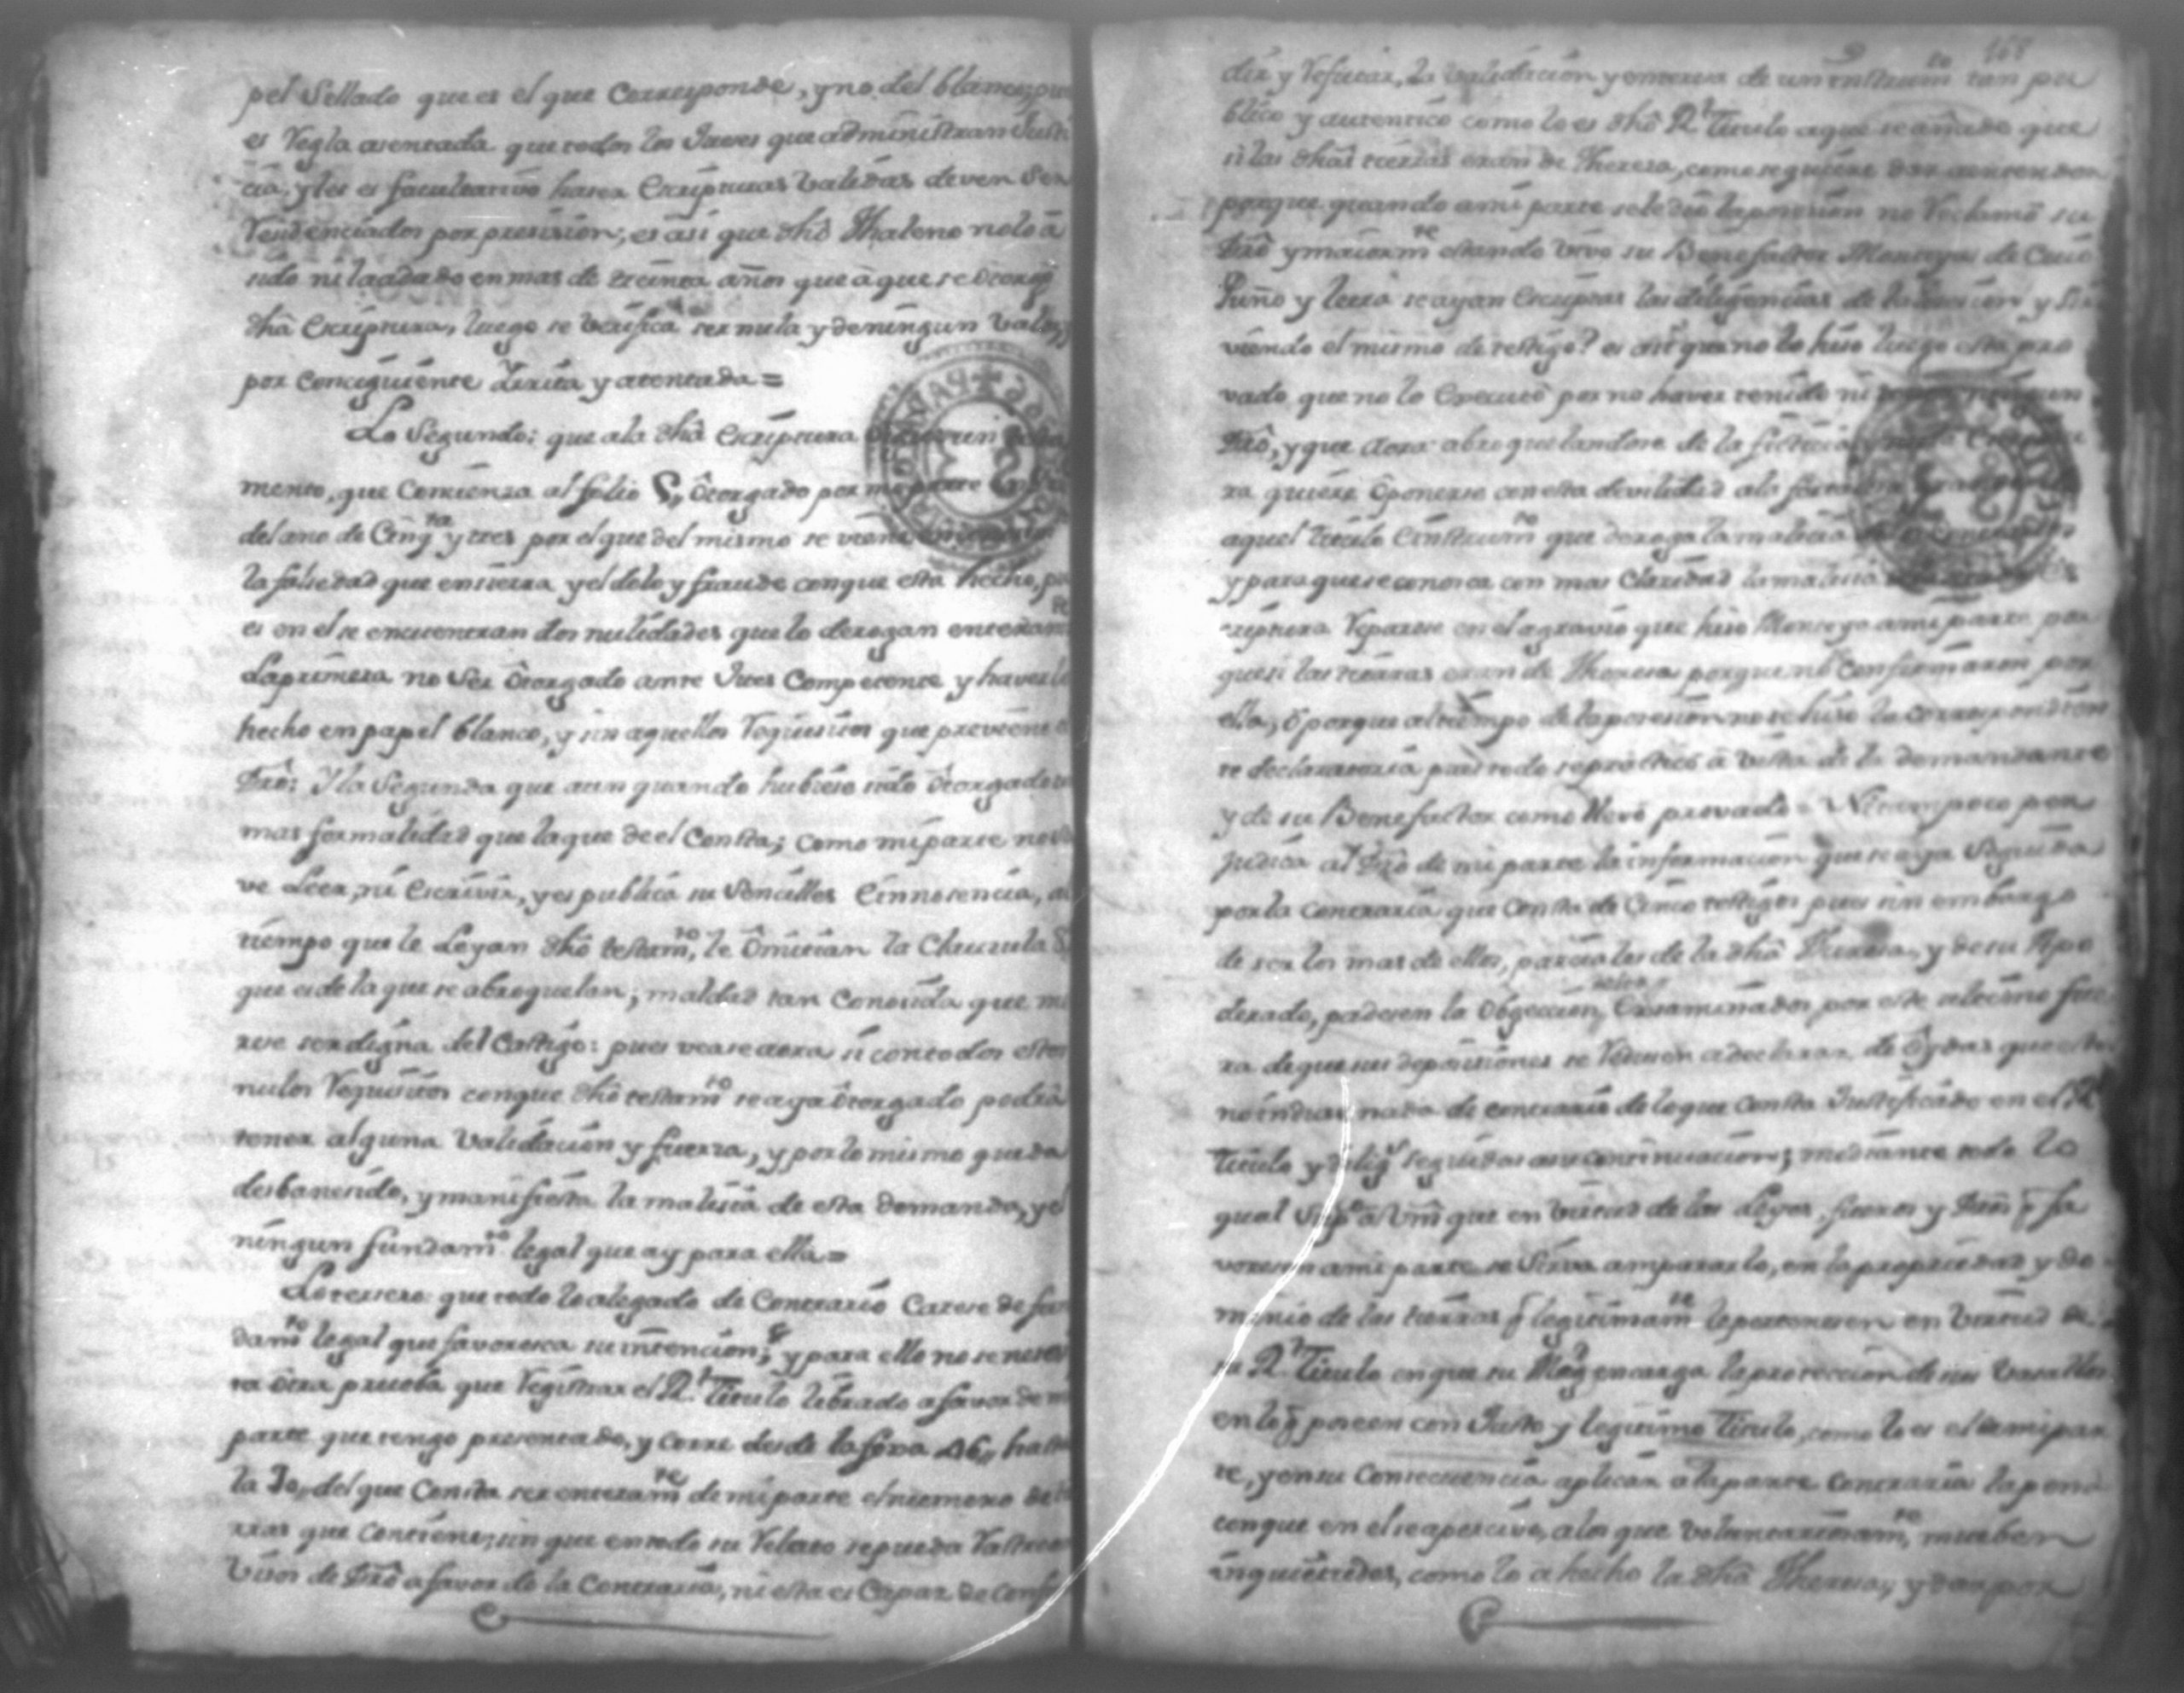 pel Sellado que es el que Corresponde, y no del blanco, pu
es Regla asentada que todos los Jueses que administran Justi
cia, y les es facultativo haser Escripturas Validas deven Ser
Residenciados por presisión; es asi que dhô Thaleno no lo â
sido ni la a dado en mas de treinta años que à que se ôtorgó
dhâ Escriptura, luego se verifica ser nula y de ningun valor,
por Conciguiente Yrrita y atentada =
Lo Segundo: que ala dhâ Escriptura un
mento, que Comienza al folio 5, Ôtorgado por mi parte
del ano de Cinq.ta y tres por el que del mismo se viene
la falsedad que ensierra y el dolo y fraude conque esta hecho, pu
es en el se encuentran dos nulidades que lo derogan enteram.te
La primera no Ser Ôtorgado ante Jues Competente y haverlo
hecho en papel blanco, y sin aquellos Requisitos que previene el
Drô: Y la Segunda que aun quando hubiese sido Ôtorgado
mas formalidad que la que de el Consta; como mi parte no sa
ve Leer, ni Escrivir, y es publica su Sencilles Einnosencia, al
tiempo que le Leyan dhô testam.to, le Ômitian la Clauzula 5,
que es de la que se abroquelan; maldad tan Conosida que me
rese ser digna del Castigo: pues vease aora si con todos estos
nulos Requisitos conque dhô testam.to se aya ôtorgado podrá
tener alguna Validación y fuersa, y por lo mismo queda
desbanesido, y manifiesta la malisia de esta demanda, y el
ningun fundam.to legal que ay para ella =
Lo tersero: que todo lo alegado de Contrario Carese de fun
dam.to legal que favoresca su intencion; y para ello no se nesesi
ta ôtra prueba que Registrar el R.l Titulo librado a favor de mi
parte que tengo presentado, y Corre desde la foxa 46, hasta
la 50, del que Consta ser enteram.te de mi parte el numero de tie
rras que Contiene; sin que en todo su Relato se pueda Rastrear
Visos de Drô a favor de la Contraria, ni esta es Capaz de Confun
168
dir y Refutar, la validacion y entereza de un instrum.to tan pu
blico y autentico como lo es dhô R.l Titulo aque se añade que
si las dhâs tierras eran de Theresa, como se quiere dar a entender
porque quando a mi parte se le dió la posesion no Reclamó su
Drô y maiorm.te estando vivo su Benefactor Montoya de Cuio
Puño y letra se ayan Escriptas las diligencias de la posesion, y Sir
viendo el mismo de testigo? es asi que no lo hiso luego esta pro
vado que no lo Executó por no haver tenido ni
Drô, y que aora abroquelandose de la ficticia
ra quiere Ôponerse con esta devilidad a la
aquel titulo Einstrum.to que deroga la malicia
y para que se conosca con mas Claridad la malisia
criptura Reparese en el agravio que hiso Montoya a mi parte por
que si las tierras eran de Theresa porque no Confirmaron por
ella, ô porque al tiempo de la posesion no se hiso la correspondien
te declaratoria pues todo se practicó â vista de la demandante
y de su Benefactor como llevo provado = Ni tampoco per
judica al Drô de mi parte la informacion que se aya Seguida
por la Contraria que Consta de Cinco testigos pues sin embargo
de ser los mas de ellos, parciales de la dhâ Theresa, y de su Apo
derado, padesen la Obgeccion, Exsaminados por este
ra de que sus deposiciones se Redusen a declarar de Oydas que esto
no indus nada de contrario de lo que consta Justificado en el R.l
Titulo y dilig.s seguidas a su continuacion; mediante todo lo
qual Sup.co â Vm̃ que en virtud de las Leyes, fueros y Drôs q̃ fa
voresen a mi parte se Sirva ampararlo, en la propriedad y do
minio de las tierras q̃ legitimam.te le pertenesen en virtud de
su R.l Titulo en que su Mag.d encarga la proteccion de sus Vasallos
en lo q̃ poseen con Justo y legitimo Titulo, como lo es el de mi par
te, y en su Consecuencia aplicar a la parte Contraria la pena
conque en el se apercive, a los que voluntariam.te mueben
inquietudes, como lo a hecho la dhâ Theresa, y dar por